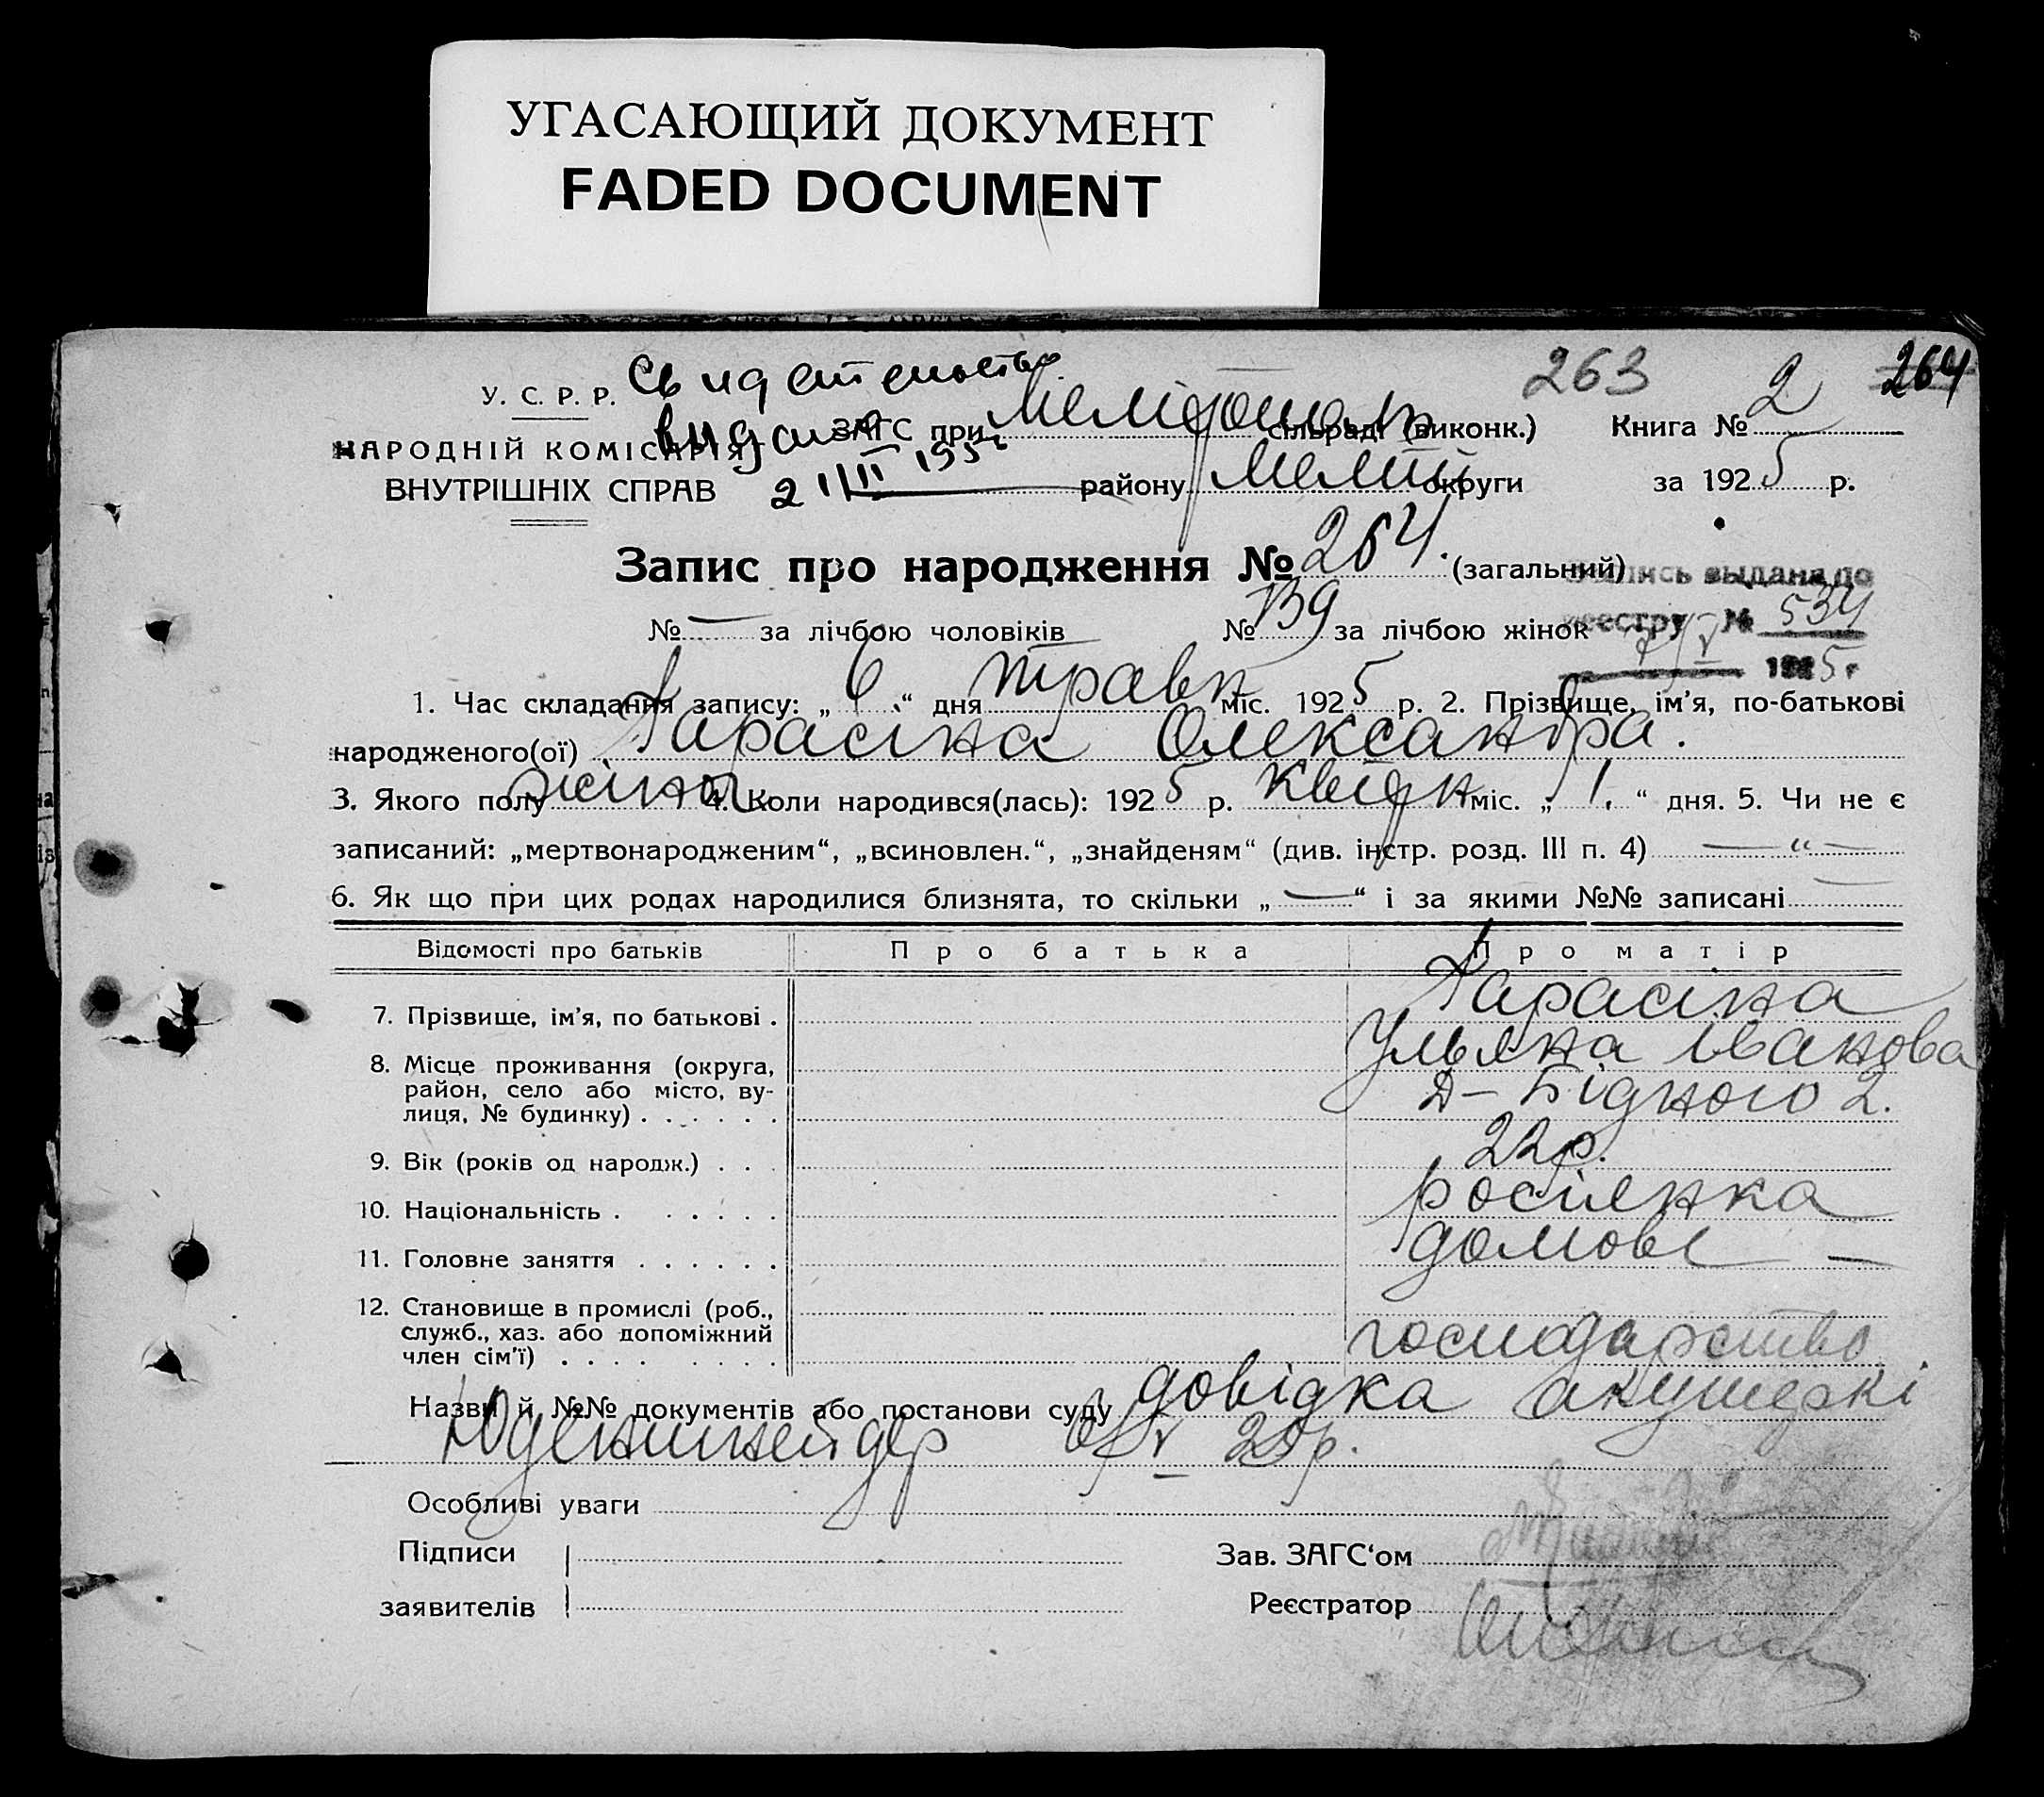 УГАСАЮЩИЙ ДОКУМЕНТ
FADED DOCUMENT
263
264
У. С. Р. Р.
Свидетельство
видано
21/III 195
НАРОДНІЙ КОМІСАРІЯТ
ВНУТРІШНІХ СПРАВ
ЗАГС при сільраді (виконк.)
району Меліт округи
Книга № 2
за 1925 р.
Запис про народження № 264. (загальний)
выдана по
реестру № 534
№ — за лічбою чоловіків № 139 за лічбою жінок
1925 г
1. Час складання запису: „6“ дня травн міс. 1925 р. 2. Прізвище, ім’я, по-батькові
народженого(ої) Тарасіна Олександра.
3. Якого полу жіноч 4. Коли народився(лась): 1925 р. квідн міс. „1.“ дня. 5. Чи не є
записаний: „мертвонародженим“, „всиновлен.“, „знайденям“ (див. інстр. розд. III п. 4) — “ —
6. Як що при цих родах народилися близнята, то скільки „—“ і за якими №№ записані —
Відомості про батьків Про батька Про матір
7. Прізвище, ім’я, по батькові . Тарасіна
Ульяна Іванова
8. Місце проживання (округа,
район, село або місто, ву-
лиця, № будинку) . . . . . . Д– Бідного 2.
9. Вік (років од народж.) . . . 22 р.
10. Національність . . . . . . росіянка
11. Головне заняття . . . . . . домове —
12. Становище в промислі (роб.,
служб., хаз. або допоміжний
член сім’ї) . . . . . . . . господарство
Назви й №№ документів або постанови суду довідка акушеркі
6/V 25р.
Особливі уваги
Підписи
заявителів
Зав. ЗАГС‘ом
Реєстратор